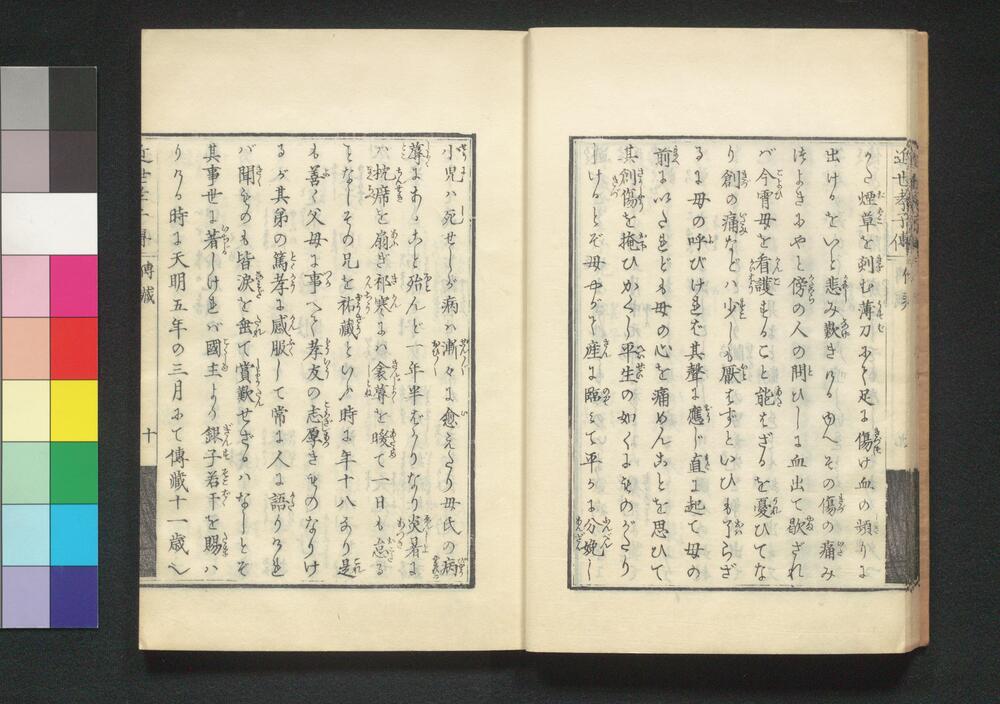 近世孝子傳
くさ煙草を刻む薄刀にて足に傷け血の頻りに
出けるをいと悲み歎きける ゆゑその傷の痛み
はよきにやと傍の人の問ひしに血出て歇ざれ
バ今宵母を看護することと能はざるを憂ひてな
り創の痛などハ少しも厭はずといひも了らざ
るに母の呼びければ其聲に應じ直に起て母の
前にいたれども母の心を痛めんことを思ひて
其創傷を掩ひかくし平生の如くにものがたり
しけるとぞ母やがて産に臨みて平かに分娩し
小児ハ死せしが病ハ漸々に愈えたり母氏の病
蓐にあること殆んど一年半ばかりなり炎暑に
ハ枕席を扇ぎ祁寒にハ衾蓐を暖て一日も怠る
ことなしその兄を祐蔵といふ時に年十八なり是
も善く父母に事へて孝友の志厚きものなりけ
るが其弟の篤孝に感服して常に人に語りけれ
バ聞ものも皆涙を垂て賞歎せざるハなしとぞ
其事世に著しければ國主より銀子若干を賜ハ
りける時に天明五年の三月にて傳蔵十一歳へ
近世孝子傳 傳蔵 十